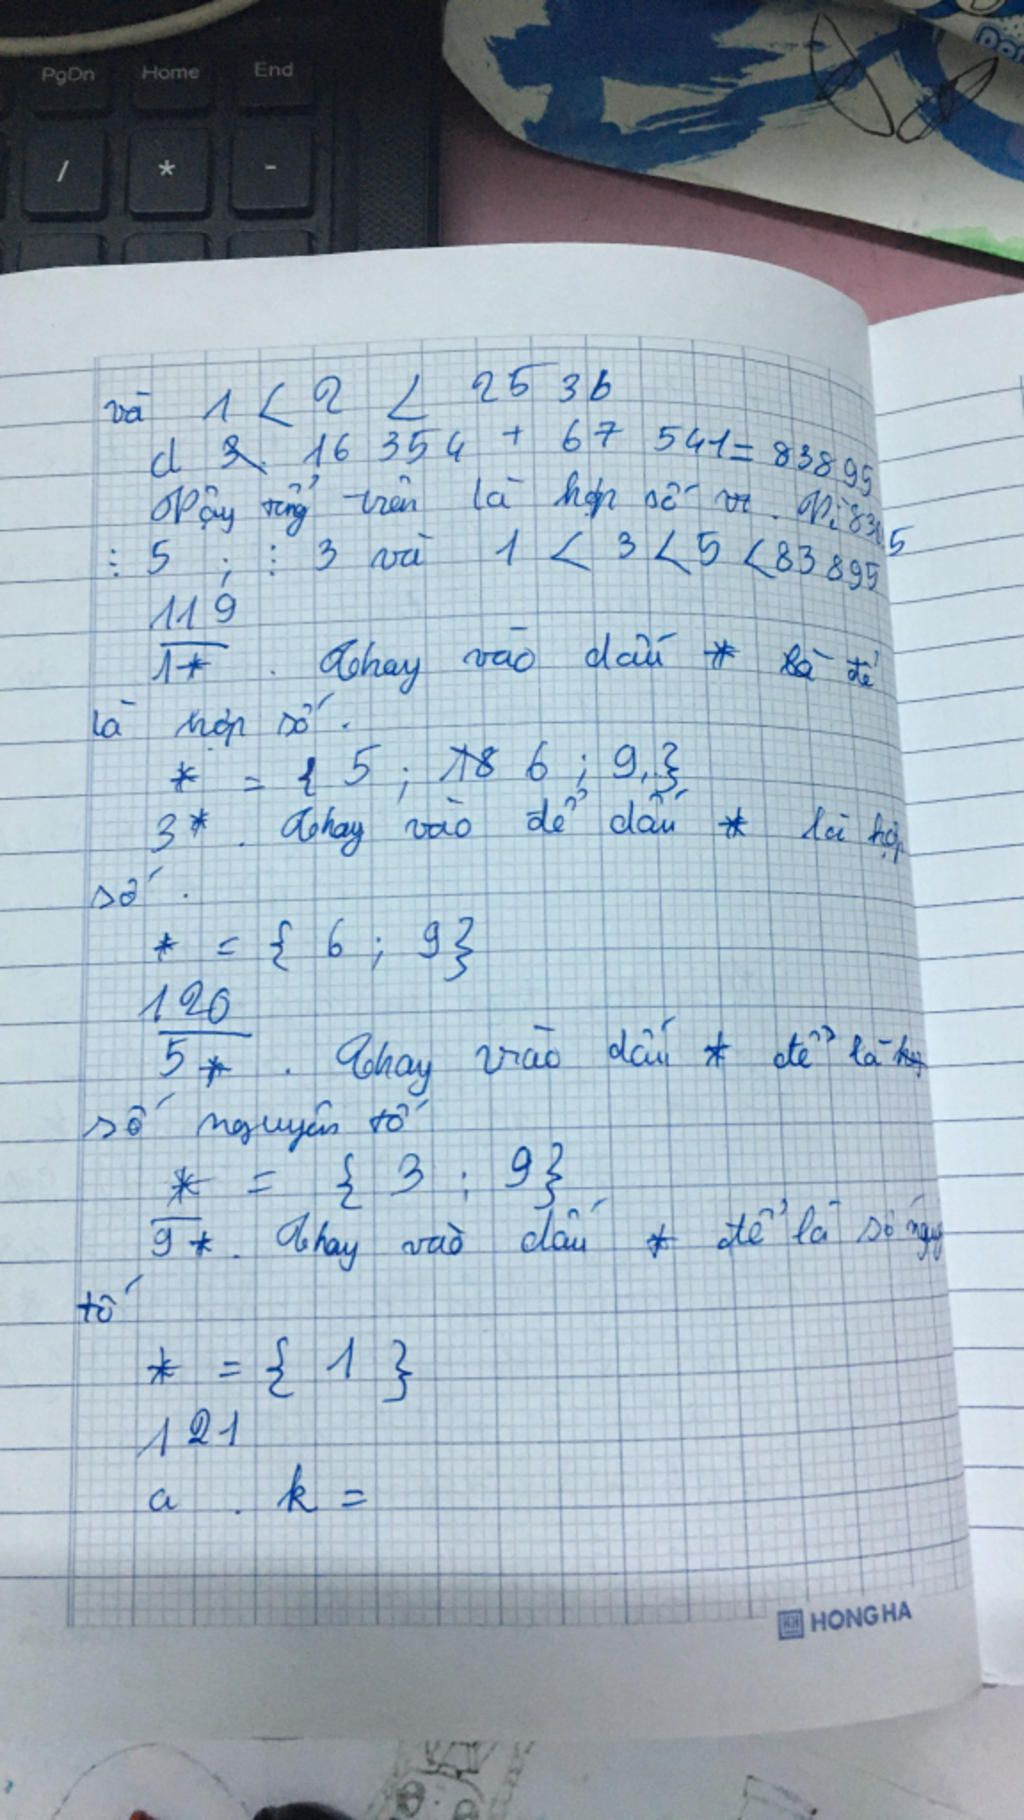 PgDn Home End
/ * -
và 1 < 2 < 2536
d 16 354 + 67 541 = 83895
Vậy tổng trên là hợp số vì. Vì 83895
⋮ 5 ; ⋮ 3 và 1 < 3 < 5 < 83895
119
1* . Thay vào dấu * để
là hợp số.
* = { 5 ; 6 ; 9 }
3* . Thay vào để dấu * là hợp
số.
* = { 6 ; 9 }
120
5* . Thay vào dấu * để là
số nguyên tố
* = { 3 ; 9 }
9* . Thay vào dấu * để là số nguy
tố
* = { 1 }
121
a . k =
HH HONG HA